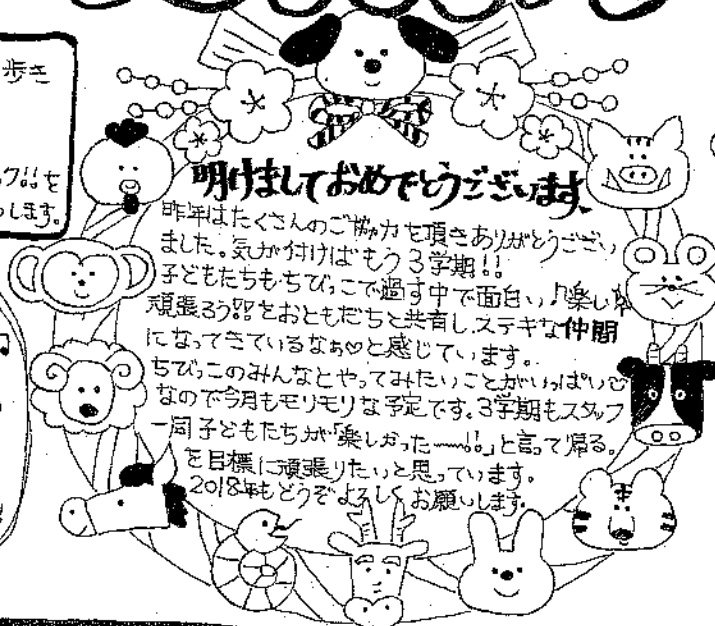 歩き
を
します。
明けましておめでとうございます。
昨年はたくさんのご協力を頂きありがとうござい
ました。気が付けばもう3学期!!
子どもたちもちびっこで過す中で面白い♪楽しい
頑張ろう!!をおともだちと共有し、ステキな仲間
になってきているなぁ♡と感じています。
ちびっこのみんなとやってみたいことがいっぱい♡
なので今月もモリモリな予定です。3学期もスタッフ
一同子どもたちが「楽しかったー!!」と言って帰る。
を目標に頑張りたいと思っています。
2018年もどうぞよろしくお願いします。